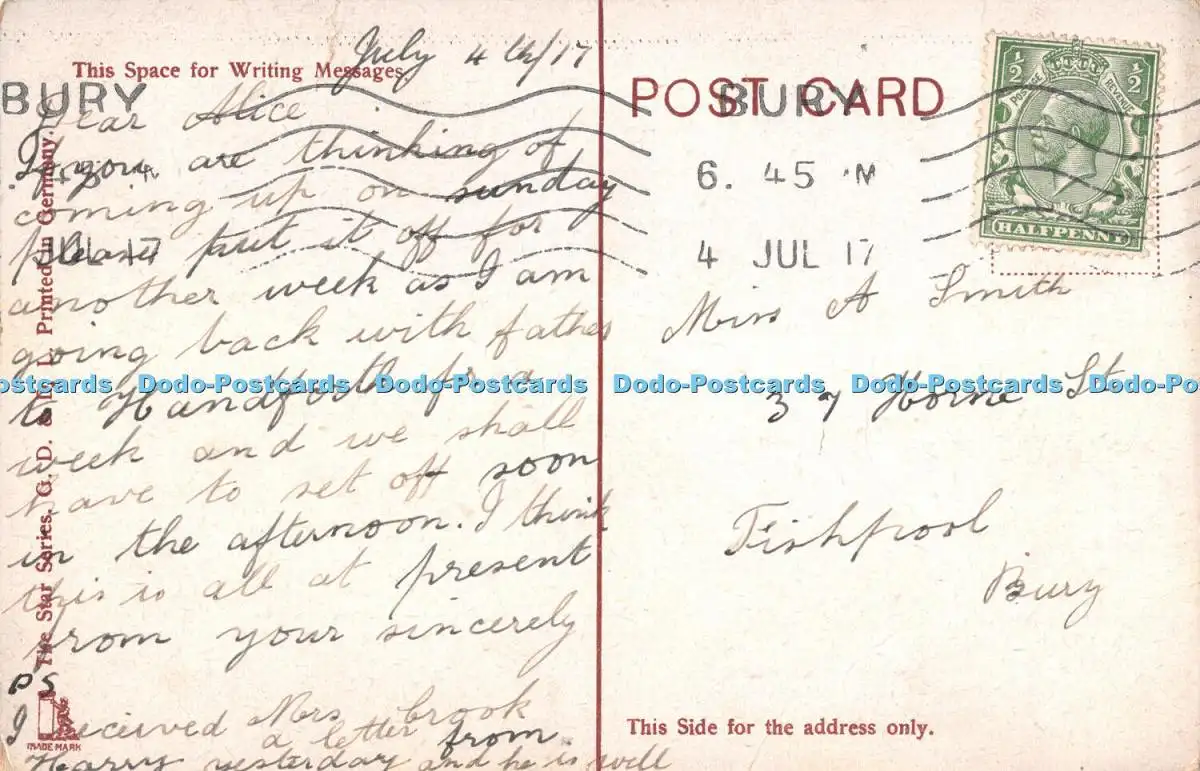 This Space for Writing Messages.
July 4th/17
Dear Alice
If you are thinking of
coming up on sunday
please put it off for
another week as I am
going back with father
to Handforth for a
week and we shall
have to set off soon
in the afternoon. I think
this is all at present
from your sincerely
Mrs brook
PS
I received a letter from
Harry yesterday and he is well
The Star Series. G. D. & D. L. Printed in Germany.
TRADE MARK
BURY
JUL 17
POST CARD
BURY
6. 45 M
4 JUL 17
½ ½
POSTAGE REVENUE
HALFPENNY
Miss A Smith
37 Horne St
Fishpool
Bury
This Side for the address only.
Postcards Dodo-Postcards Dodo-Postcards Dodo-Postcards Dodo-Postcards Dodo-Postcards